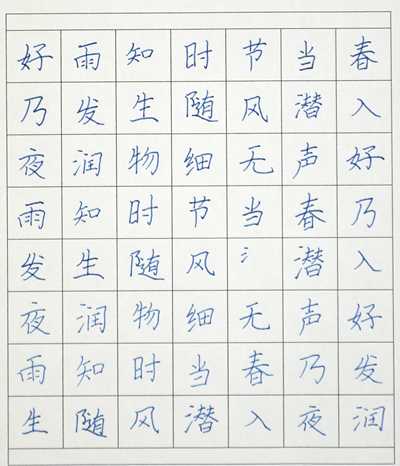 好雨知时节当春
乃发生随风潜入
夜润物细无声好
雨知时节当春乃
发生随风氵潜入
夜润物细无声好
雨知时当春乃发
生随风潜入夜润